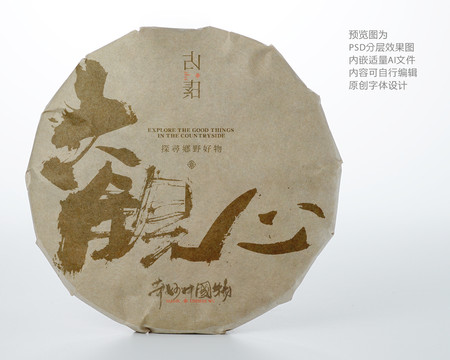 预览图为
PSD分层效果图
内嵌适量AI文件
内容可自行编辑
原创字体设计
EXPLORE THE GOOD THINGS
IN THE COUNTRYSIDE
探尋鄉野好物
奇妙中國物